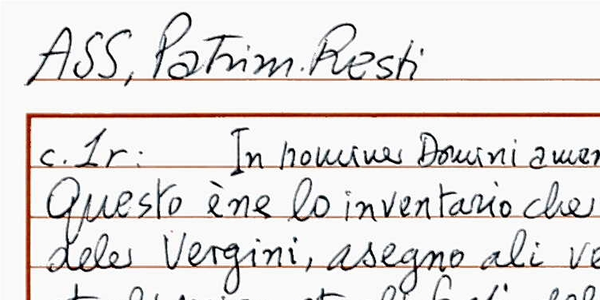 ASS, Patrim. Resti
c. 1r: In nomine Domini amen
Questo ène lo inventario che
dele Vergini, asegno ali ve